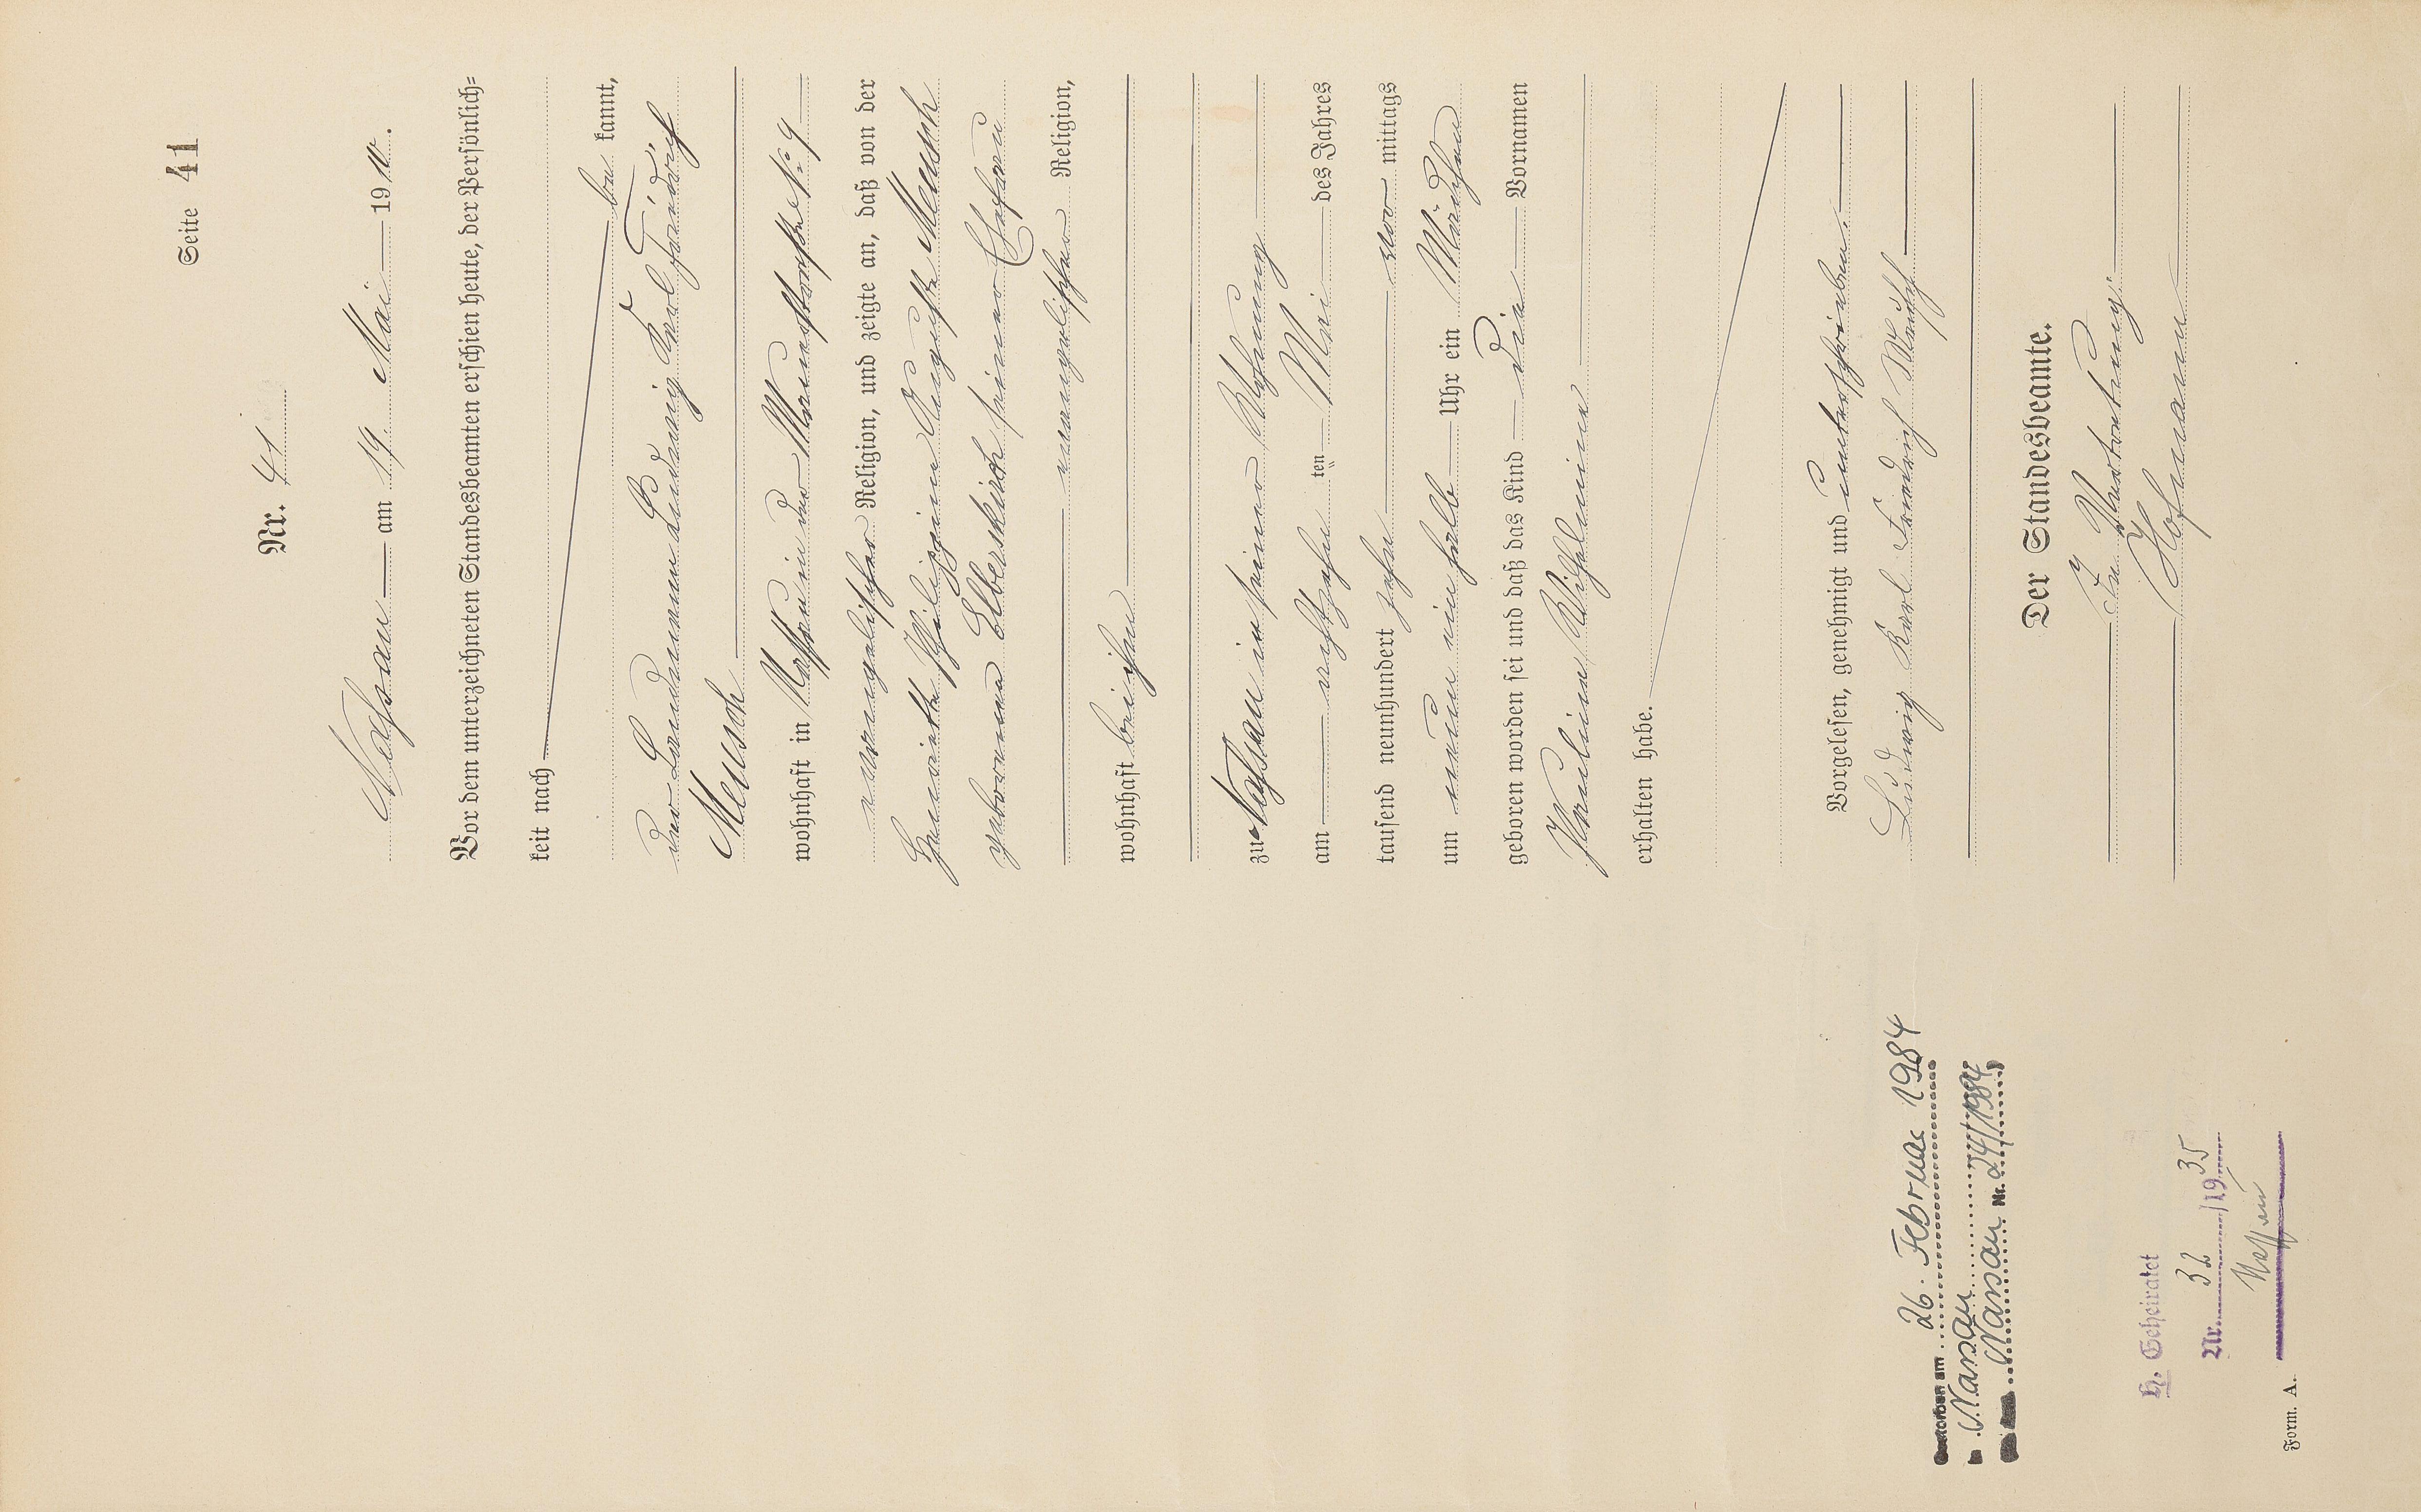 Seite 41
Nr. 41
Nassau am 19. Mai 1910.
Vor dem unterzeichneten Standesbeamten erschien heute, der Persönlich⸗
keit nach
be kannt,
der Landmann Ludwig Karl Friedrich
Meusch
wohnhaft in Nassau in der
evangelischer Religion, und zeigte an, daß von der
Henriette Philippine Auguste Meusch
geborenen Elberskirch seiner Ehefrau
evangelischer Religion,
wohnhaft bei ihm
zu Nassau in seiner Wohnung
am achtzehn ten Mai des Jahres
tausend neunhundert zehn vor mittags
um neun ein halb Uhr ein Mädchen
geboren worden sei und daß das Kind die Vornamen
Pauline Wilhelmine
erhalten habe.
Vorgelesen, genehmigt und unterschrieben.
Ludwig Karl Friedrich Meusch
Der Standesbeamte.
In Vertretung:
Hofmann
Gestorben am 26. Februar 1984
in Nassau
Nassau Nr. 24/1984
H. Geheiratet
Nr. 32/1935
Nassau
Form. A.